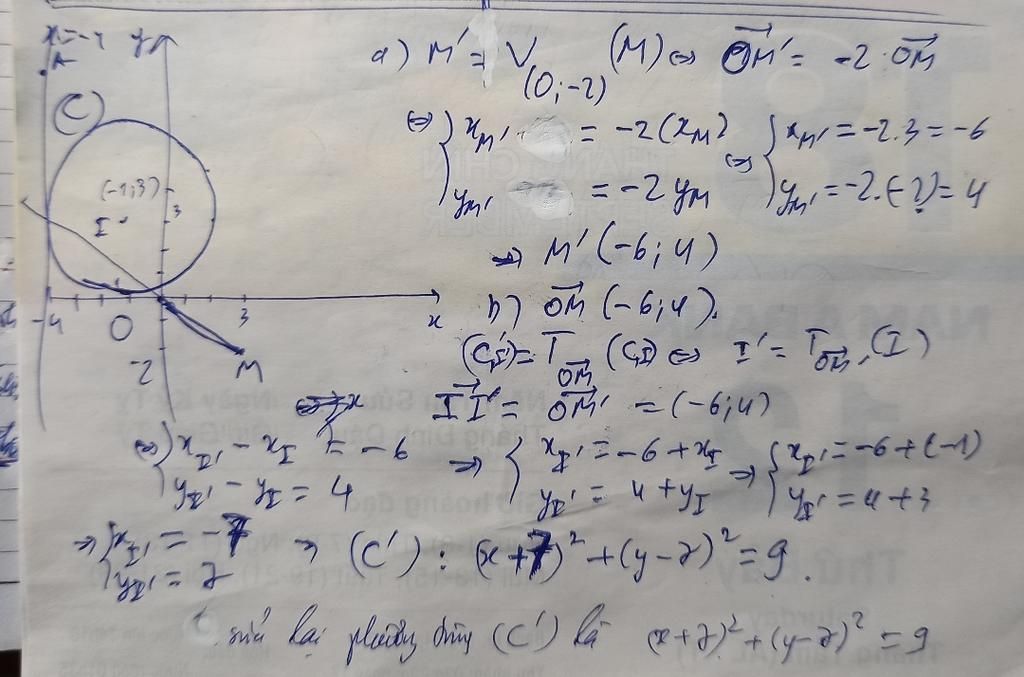 x=-4 y
A
(C)
(-1;3)
I
3
-4 O 3 x
-2 M
a) M' = V(O;-2) (M) ⇔ \overrightarrow{OM'} = -2.\overrightarrow{OM}
⇔ { x_{M'} = -2(x_M) ⇔ { x_{M'} = -2.3 = -6
y_{M'} = -2y_M y_{M'} = -2.(-2) = 4
⇒ M'(-6;4)
b) \overrightarrow{OM}(-6;4).
(C',I') = T_{\overrightarrow{OM}} (C,I) ⇔ I' = T_{\overrightarrow{OM'}}(I)
\overrightarrow{II'} = \overrightarrow{OM'} = (-6;4)
⇔ { x_{I'} - x_I = -6 ⇒ { x_{I'} = -6 + x_I ⇒ { x_{I'} = -6+(-1)
y_{I'} - y_I = 4 y_{I'} = 4 + y_I y_{I'} = 4+3
⇒ { x_{I'} = -7 ⇒ (C') : (x+7)² + (y-7)² = 9.
y_{I'} = 7
sửa lại phương trình (C') là (x+7)² + (y-7)² = 9